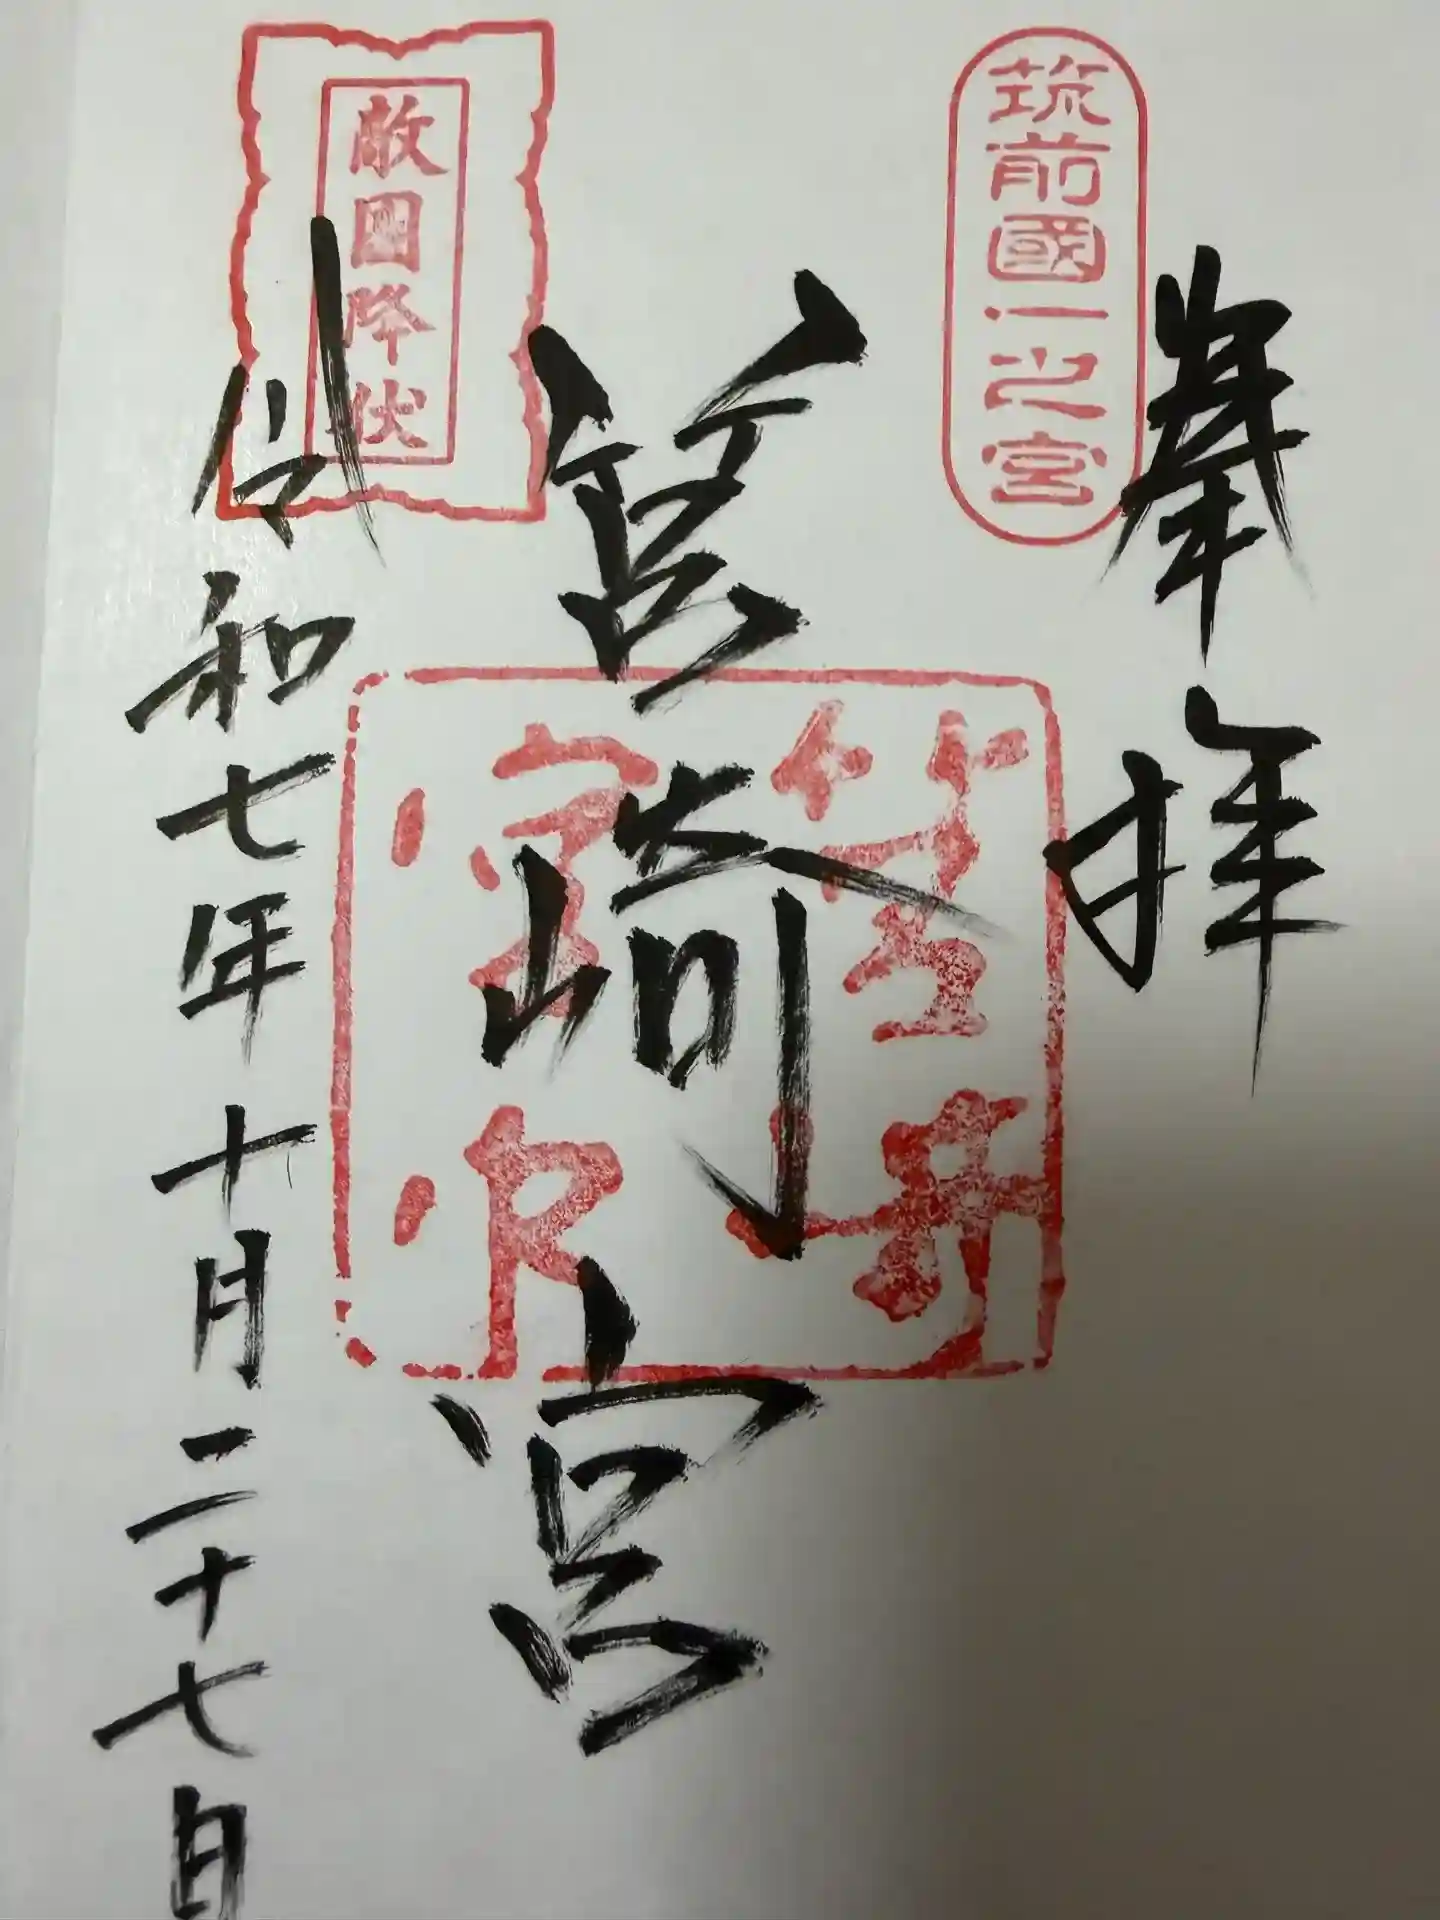 奉拝
筑前國一之宮
筥崎宮
筥崎宮印
敵國降伏
令和七年十月二十七日